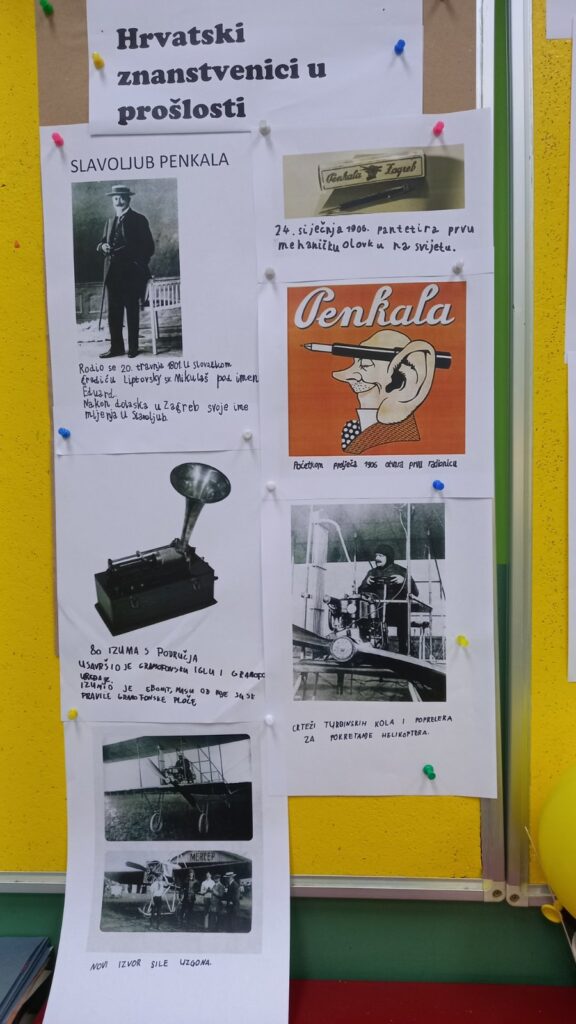 Hrvatski
znanstvenici u
prošlosti
SLAVOLJUB PENKALA
Rodio se 20. travnja 1801. u slovačkom
gradiću Liptovsky sv. Mikulaš pod imen
Eduard.
Nakon dolaska u Zagreb svoje ime
mijenja u Slavoljub.
Penkala Zagreb
24. siječnja 1906. pantetira prvu
mehaničku olovku na svijetu.
Penkala
Početkom proljeća 1906 otvara prvu radionicu
80 IZUMA S PODRUČJA
USAVRŠIO JE GRAMOFONSKU IGLU I GRAMOFO
UREĐAJE.
IZUMIO JE EBONIT, MASU OD KOJE SU SE
PRAVILE GRAMOFONSKE PLOČE.
CRTEŽI TURBINSKIH KOLA I POPRELERA
ZA POKRETANJE HELIKOPTERA.
MERĆEP
NOVI IZVOR SILE UZGONA.